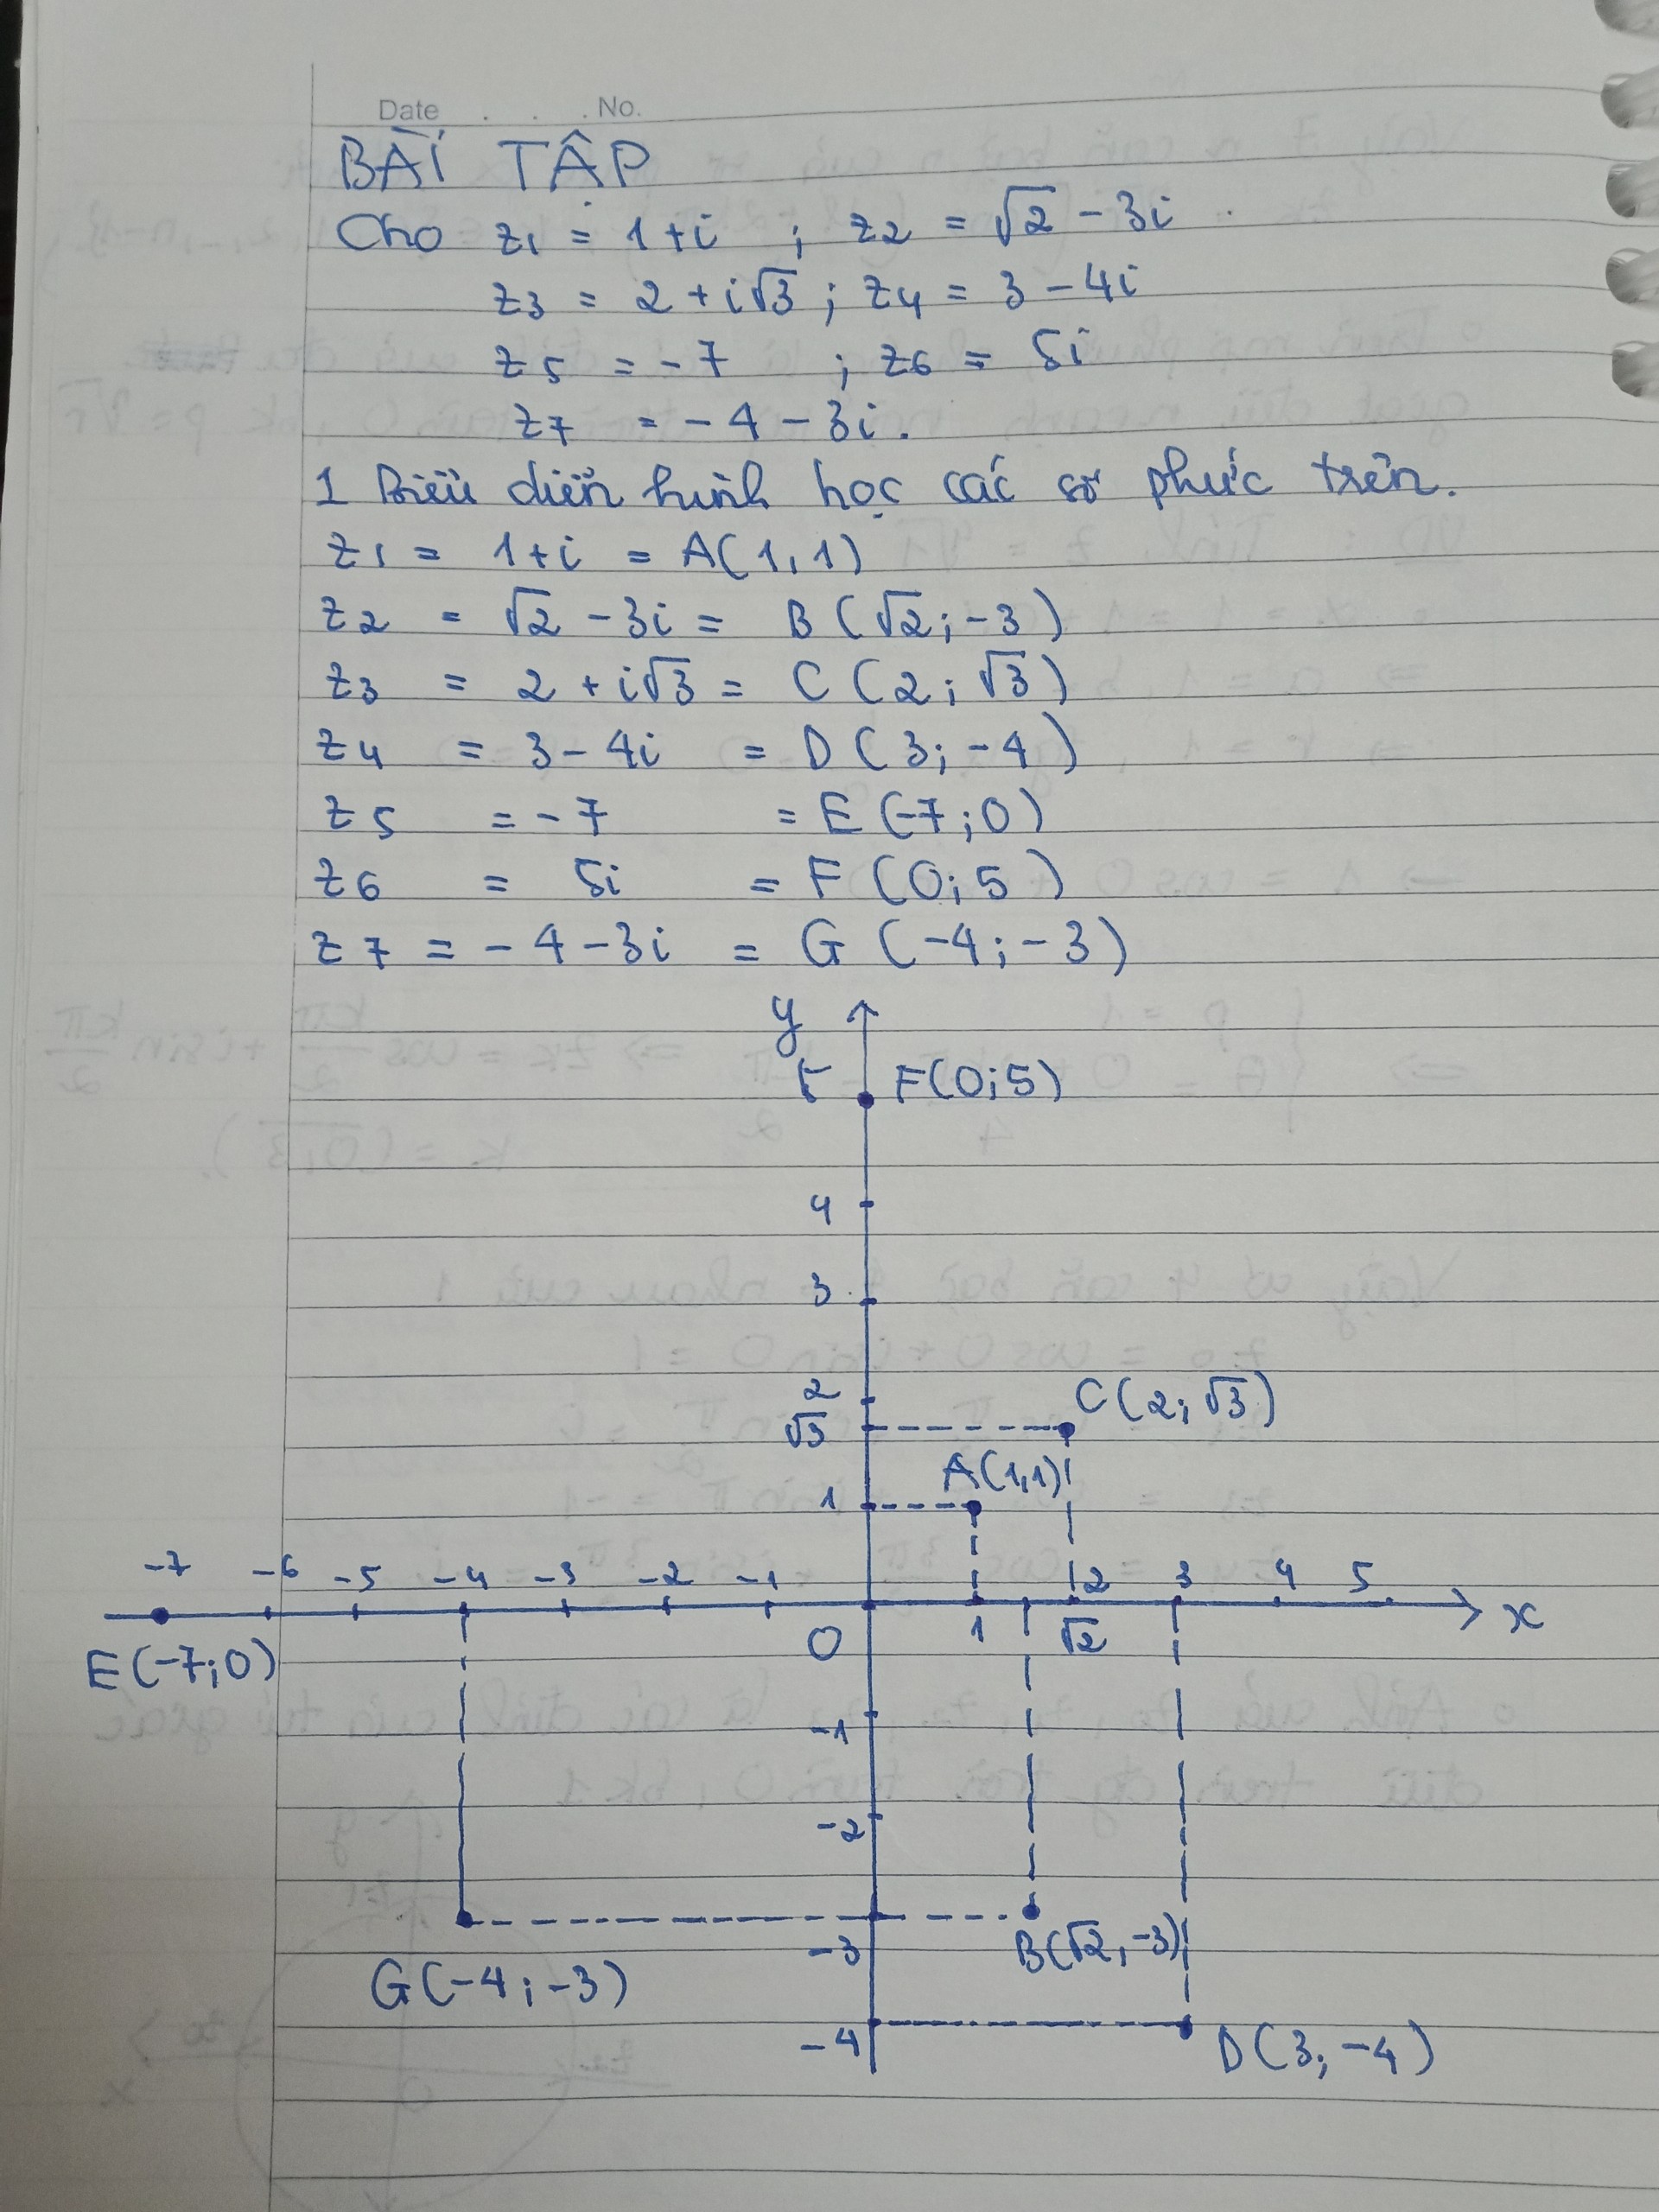 Date . . . No.
BÀI TẬP
Cho z1 = 1+i ; z2 = √2 - 3i
z3 = 2 + i√3 ; z4 = 3 - 4i
z5 = -7 ; z6 = 5i
z7 = -4 - 3i.
1 Biểu diễn hình học các số phức trên.
z1 = 1+i = A(1,1)
z2 = √2 - 3i = B(√2; -3)
z3 = 2 + i√3 = C(2; √3)
z4 = 3 - 4i = D(3; -4)
z5 = -7 = E(-7; 0)
z6 = 5i = F(0; 5)
z7 = -4 - 3i = G(-4; -3)
y
5 F(0;5)
4
3
2 C(2; √3)
√3
A(1,1)
1
-7 -6 -5 -4 -3 -2 -1 2 3 4 5
O 1 √2 x
E(-7;0)
-1
-2
-3 B(√2, -3)
G(-4; -3)
-4 D(3; -4)